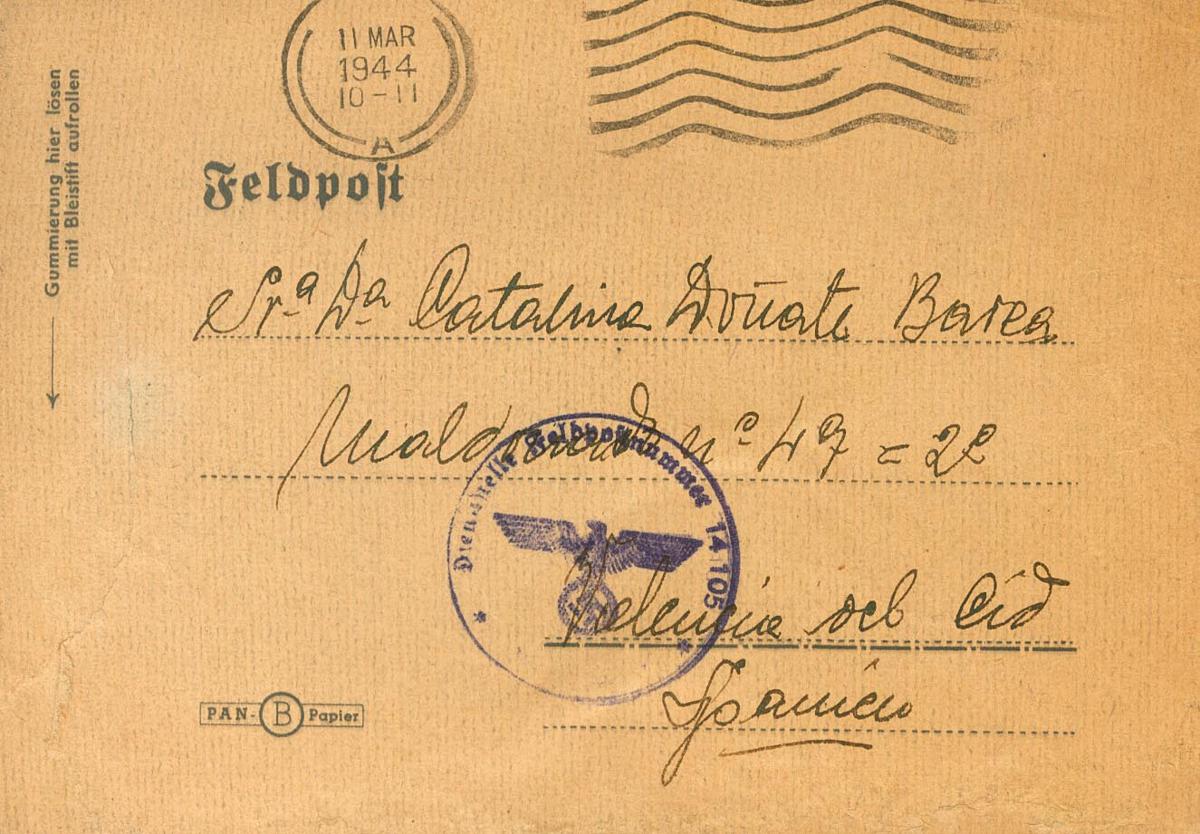 11 MAR
1944
10-11
A
Gummierung hier lösen
mit Bleistift aufrollen
Feldpost
Sr.ª Dª Catalina Doñate Barea
Maldonado nº 47 = 2º
Dienststelle Feldpostnummer 14105
Valencia del Cid
Spanien
PAN-B Papier